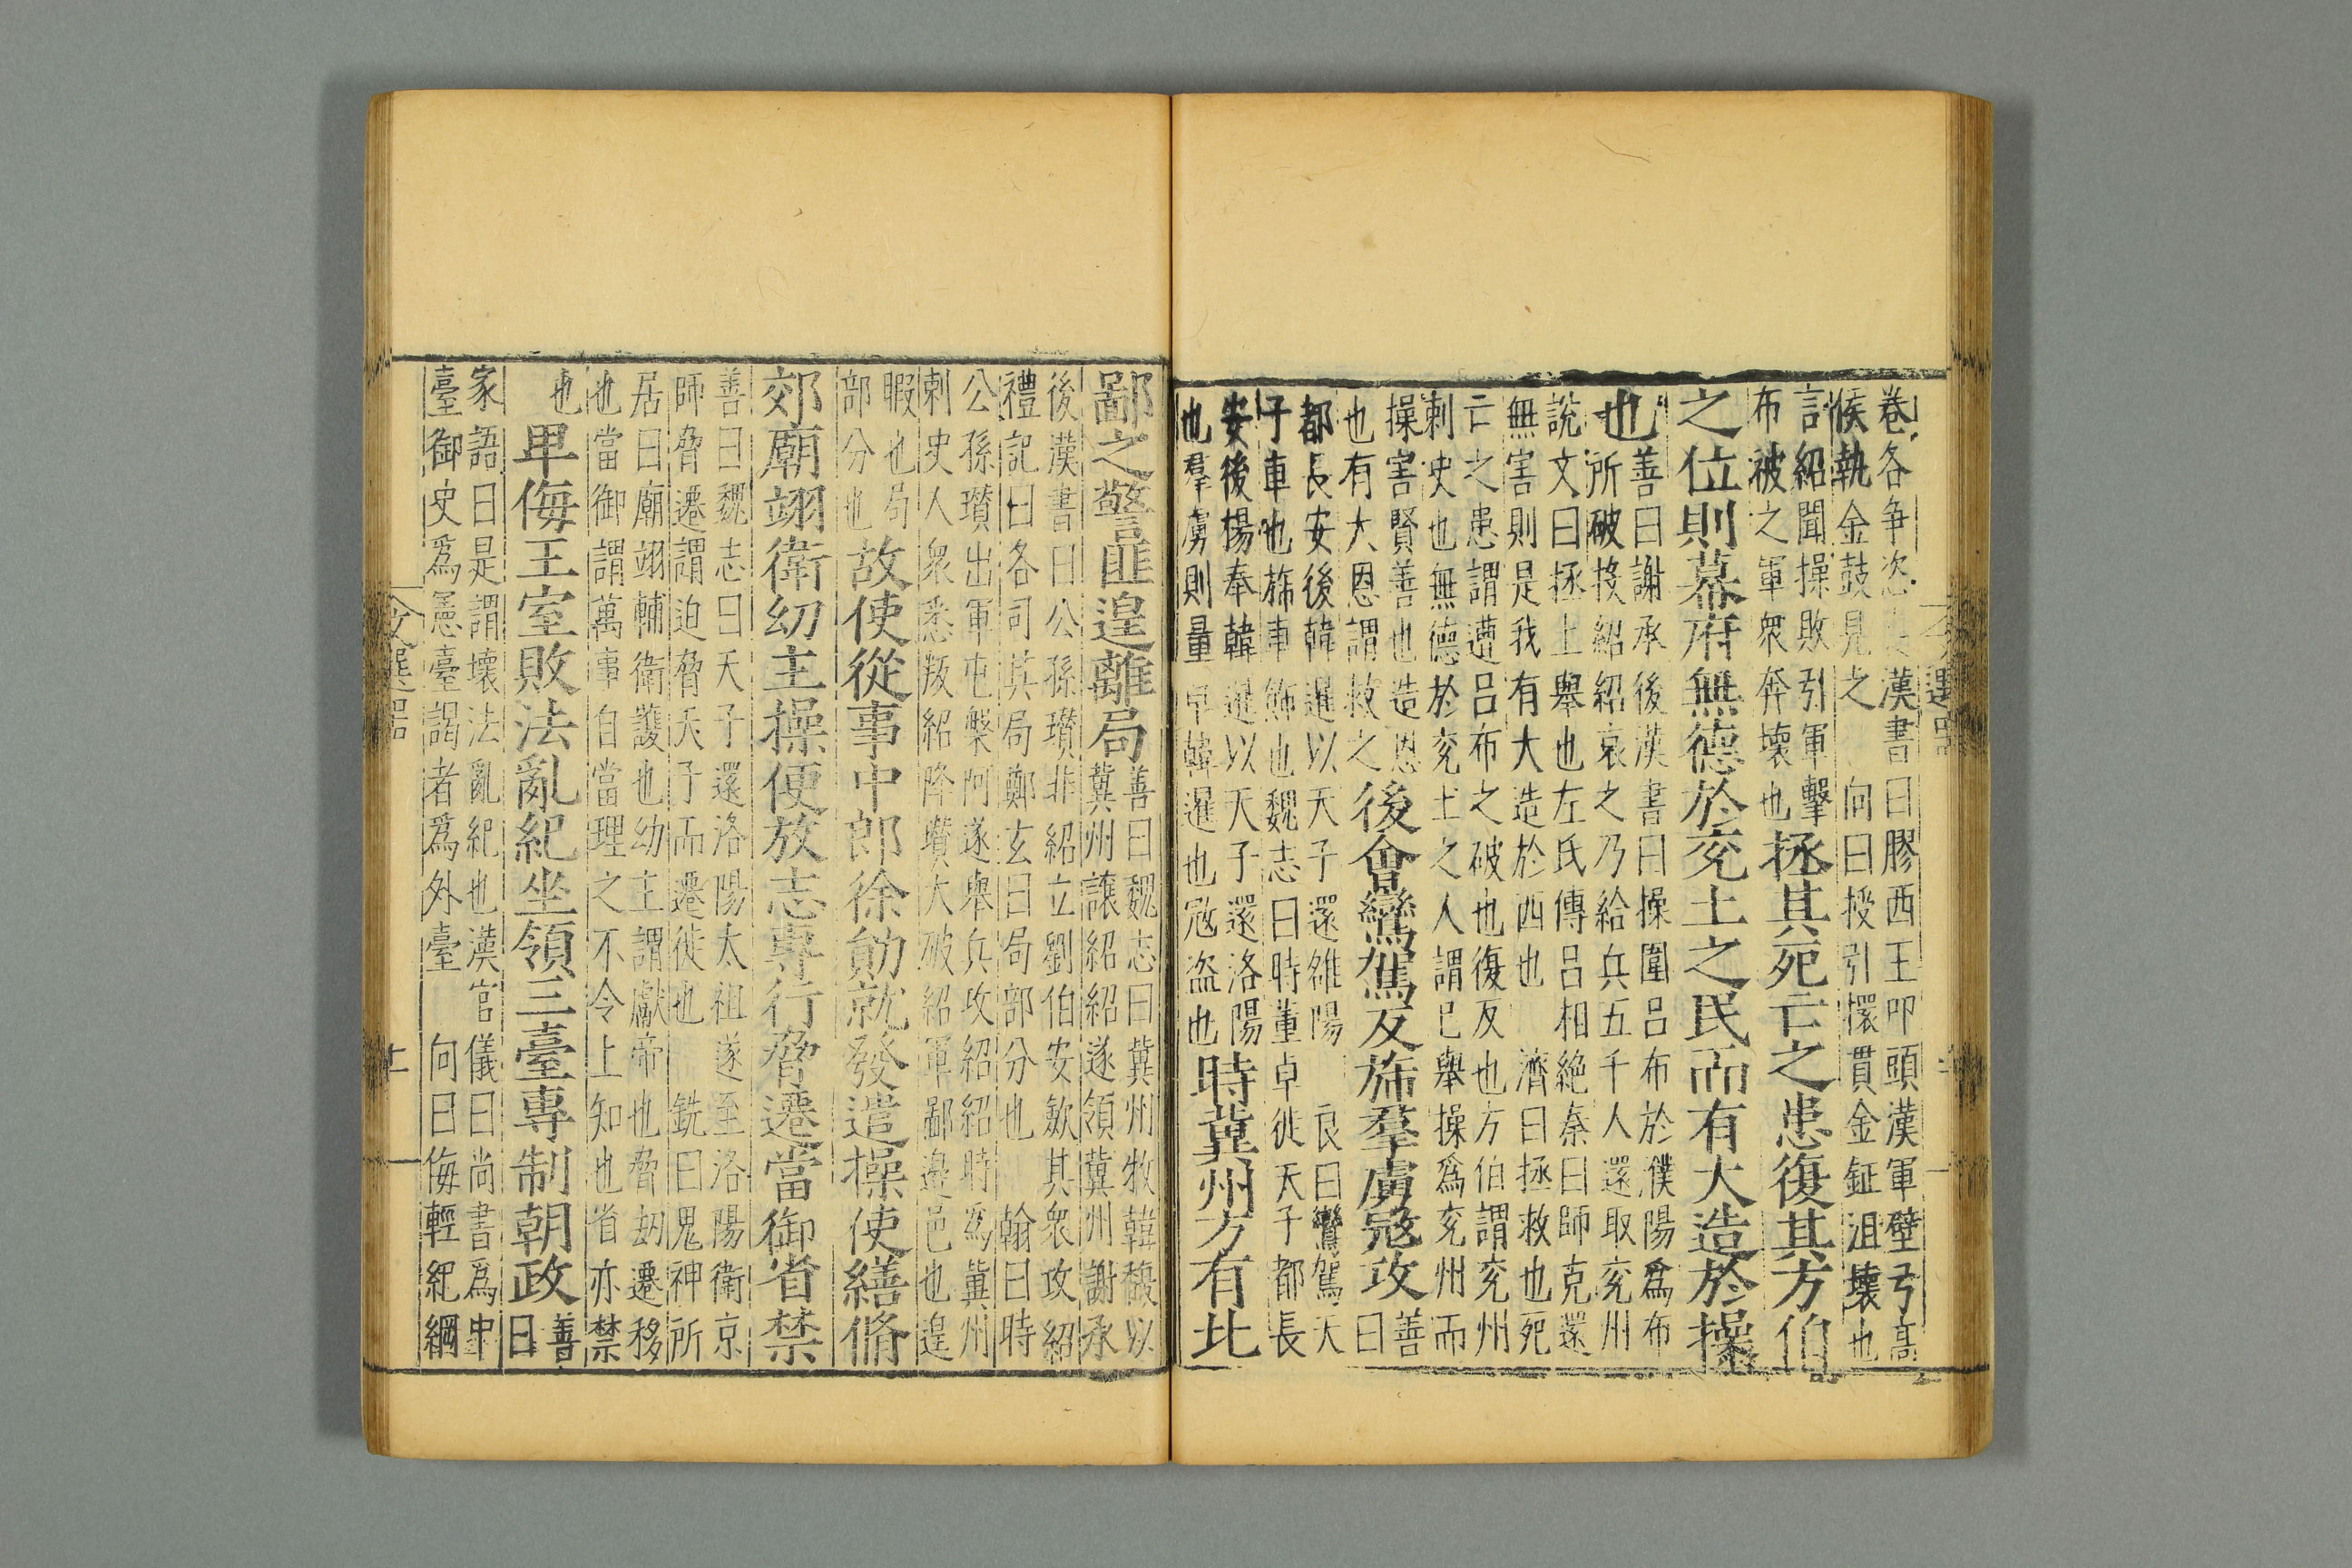 卷各争次漢書曰膠西王叩頭漢軍壁弓高
侯執金鼓見之 向曰投引擐貫金鉦沮壞也
言紹聞操敗引軍擊
布被之軍衆奔壞也
拯其死亡之患復其方伯
之位則幕府無德於兖土之民而有大造於操
也
善曰謝承後漢書曰操圍吕布於濮陽爲布
所破投紹紹哀之乃給兵五千人還取兖州
說文曰拯上舉也左氏傳吕相絶秦曰師克還
無害則是我有大造於西也 濟曰拯救也死
亡之患謂遭吕布之破也復反也方伯謂兖州
刺史也無德於兖土之人謂已舉操爲兖州而
操害賢善也造恩
也有大恩謂救之
後會鸞駕反斾羣虜冦攻
善
曰
都長安後韓暹以天子還雒陽 良曰鸞駕天
子車也斾車飾也魏志曰時董卓徙天子都長
安後楊奉韓暹以天子還洛陽
也羣虜則量卓韓暹也冦盗也
時冀州方有北
鄙之警匪遑離局
善曰魏志曰冀州牧韓馥以
冀州讓紹紹遂領冀州謝承
後漢書曰公孫瓉非紹立劉伯安歛其衆攻紹
禮記曰各司其局鄭玄曰局部分也 翰曰時
公孫瓉出軍屯槃阿遂舉兵攻紹紹時爲冀州
刺史人衆悉叛紹降瓉大破紹軍鄙邉邑也遑
暇也局
部分也
故使從事中郎徐勛就發遣操使繕脩
郊廟翊衛幼主操便放志專行脅遷當御省禁
善曰魏志曰天子還洛陽太祖遂至洛陽衛京
師脅遷謂迫脅天子而遷徙也 銑曰鬼神所
居曰廟翊輔衛護也幼主謂獻帝也脅劫遷移
也當御謂萬事自當理之不令上知也省亦禁
也
卑侮王室敗法亂紀坐領三臺專制朝政
善
曰
家語曰是謂壞法亂紀也漢官儀曰尚書爲中
臺御史爲憲臺謁者爲外臺 向曰侮輕紀綱